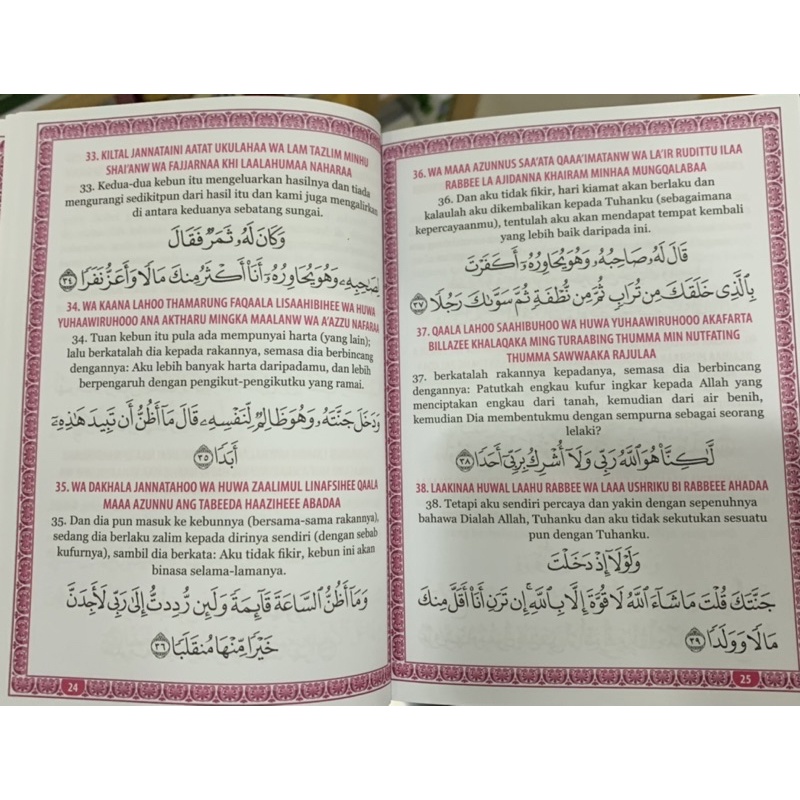 33. KILTAL JANNATAINI AATAT UKULAHAA WA LAM TAZLIM MINHU
SHAI'ANW WA FAJJARNAA KHI LAALAHUMAA NAHARAA
33. Kedua-dua kebun itu mengeluarkan hasilnya dan tiada
mengurangi sedikitpun dari hasil itu dan kami juga mengalirkan
di antara keduanya sebatang sungai.
وَكَانَ لَهُۥ ثَمَرٌ فَقَالَ
لِصَٰحِبِهِۦ وَهُوَ يُحَاوِرُهُۥٓ أَنَا۠ أَكْثَرُ مِنكَ مَالًا وَأَعَزُّ نَفَرًا ٣٤
34. WA KAANA LAHOO THAMARUNG FAQAALA LISAAHIBIHEE WA HUWA
YUHAAWIRUHOOO ANA AKTHARU MINGKA MAALANW WA A'AZZU NAFARAA
34. Tuan kebun itu pula ada mempunyai harta (yang lain);
lalu berkatalah dia kepada rakannya, semasa dia berbincang
dengannya: Aku lebih banyak harta daripadamu, dan lebih
berpengaruh dengan pengikut-pengikutku yang ramai.
وَدَخَلَ جَنَّتَهُۥ وَهُوَ ظَالِمٌ لِّنَفْسِهِۦ قَالَ مَآ أَظُنُّ أَن تَبِيدَ هَٰذِهِۦٓ
أَبَدًا ٣٥
35. WA DAKHALA JANNATAHOO WA HUWA ZAALIMUL LINAFSIHEE QAALA
MAAA AZUNNU ANG TABEEDA HAAZIHEEE ABADAA
35. Dan dia pun masuk ke kebunnya (bersama-sama rakannya),
sedang dia berlaku zalim kepada dirinya sendiri (dengan sebab
kufurnya), sambil dia berkata: Aku tidak fikir, kebun ini akan
binasa selama-lamanya.
وَمَآ أَظُنُّ ٱلسَّاعَةَ قَآئِمَةً وَلَئِن رُّدِدتُّ إِلَىٰ رَبِّى لَأَجِدَنَّ
خَيْرًا مِّنْهَا مُنقَلَبًا ٣٦
24
36. WA MAAA AZUNNUS SAA'ATA QAAA'IMATANW WA LA'IR RUDITTU ILAA
RABBEE LA AJIDANNA KHAIRAM MINHAA MUNGQALABAA
36. Dan aku tidak fikir, hari kiamat akan berlaku dan
kalaulah aku dikembalikan kepada Tuhanku (sebagaimana
kepercayaanmu), tentulah aku akan mendapat tempat kembali
yang lebih baik daripada ini.
قَالَ لَهُۥ صَاحِبُهُۥ وَهُوَ يُحَاوِرُهُۥٓ أَكَفَرْتَ
بِٱلَّذِى خَلَقَكَ مِن تُرَابٍ ثُمَّ مِن نُّطْفَةٍ ثُمَّ سَوَّىٰكَ رَجُلًا ٣٧
37. QAALA LAHOO SAAHIBUHOO WA HUWA YUHAAWIRUHOOO AKAFARTA
BILLAZEE KHALAQAKA MING TURAABING THUMMA MIN NUTFATING
THUMMA SAWWAAKA RAJULAA
37. berkatalah rakannya kepadanya, semasa dia berbincang
dengannya: Patutkah engkau kufur ingkar kepada Allah yang
menciptakan engkau dari tanah, kemudian dari air benih,
kemudian Dia membentukmu dengan sempurna sebagai seorang
lelaki?
لَّٰكِنَّا۠ هُوَ ٱللَّهُ رَبِّى وَلَآ أُشْرِكُ بِرَبِّىٓ أَحَدًا ٣٨
38. LAAKINAA HUWAL LAAHU RABBEE WA LAAA USHRIKU BI RABBEEE AHADAA
38. Tetapi aku sendiri percaya dan yakin dengan sepenuhnya
bahawa Dialah Allah, Tuhanku dan aku tidak sekutukan sesuatu
pun dengan Tuhanku.
وَلَوْلَآ إِذْ دَخَلْتَ
جَنَّتَكَ قُلْتَ مَا شَآءَ ٱللَّهُ لَا قُوَّةَ إِلَّا بِٱللَّهِ ۚ إِن تَرَنِ أَنَا۠ أَقَلَّ مِنكَ
مَالًا وَوَلَدًا ٣٩
25